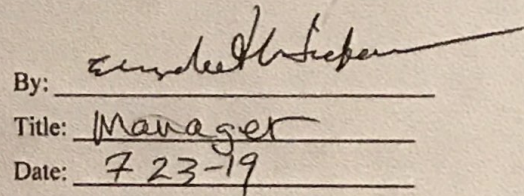 By:
Title: Manager
Date: 7 23-19